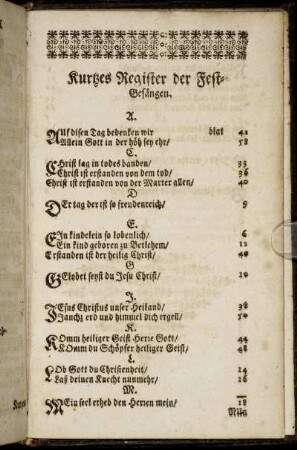 Kurtzes Register der Fest-
Gesängen.
A.
Auf disen Tag bedenken wir blat 42
Allein Gott in der höh sey ehr/ 58
C.
Christ lag in todes banden/ 33
Christ ist erstanden von dem tod/ 36
Christ ist erstanden von der Marter allen/ 40
D
DEr tag der ist so freudenreich/ 9
E.
EIn kindelein so lobenlich/ 6
Ein kind geboren zu Bethlehem/ 12
Erstanden ist der heilig Christ/ 40
G
GElobet seyst du Jesu Christ/ 10
J.
JEsus Christus unser Heiland/ 38
Jauchz erd und himmel dich ergell/ 50
K.
KOmm heiliger Geist Herre Gott/ 44
KOmm du Schöpfer heiliger Geist/ 48
L.
LOb Gott du Christenheit/ 14
Laß deinen Knecht nunmehr/ 26
M.
MEin seel erheb den Herren mein/ 18